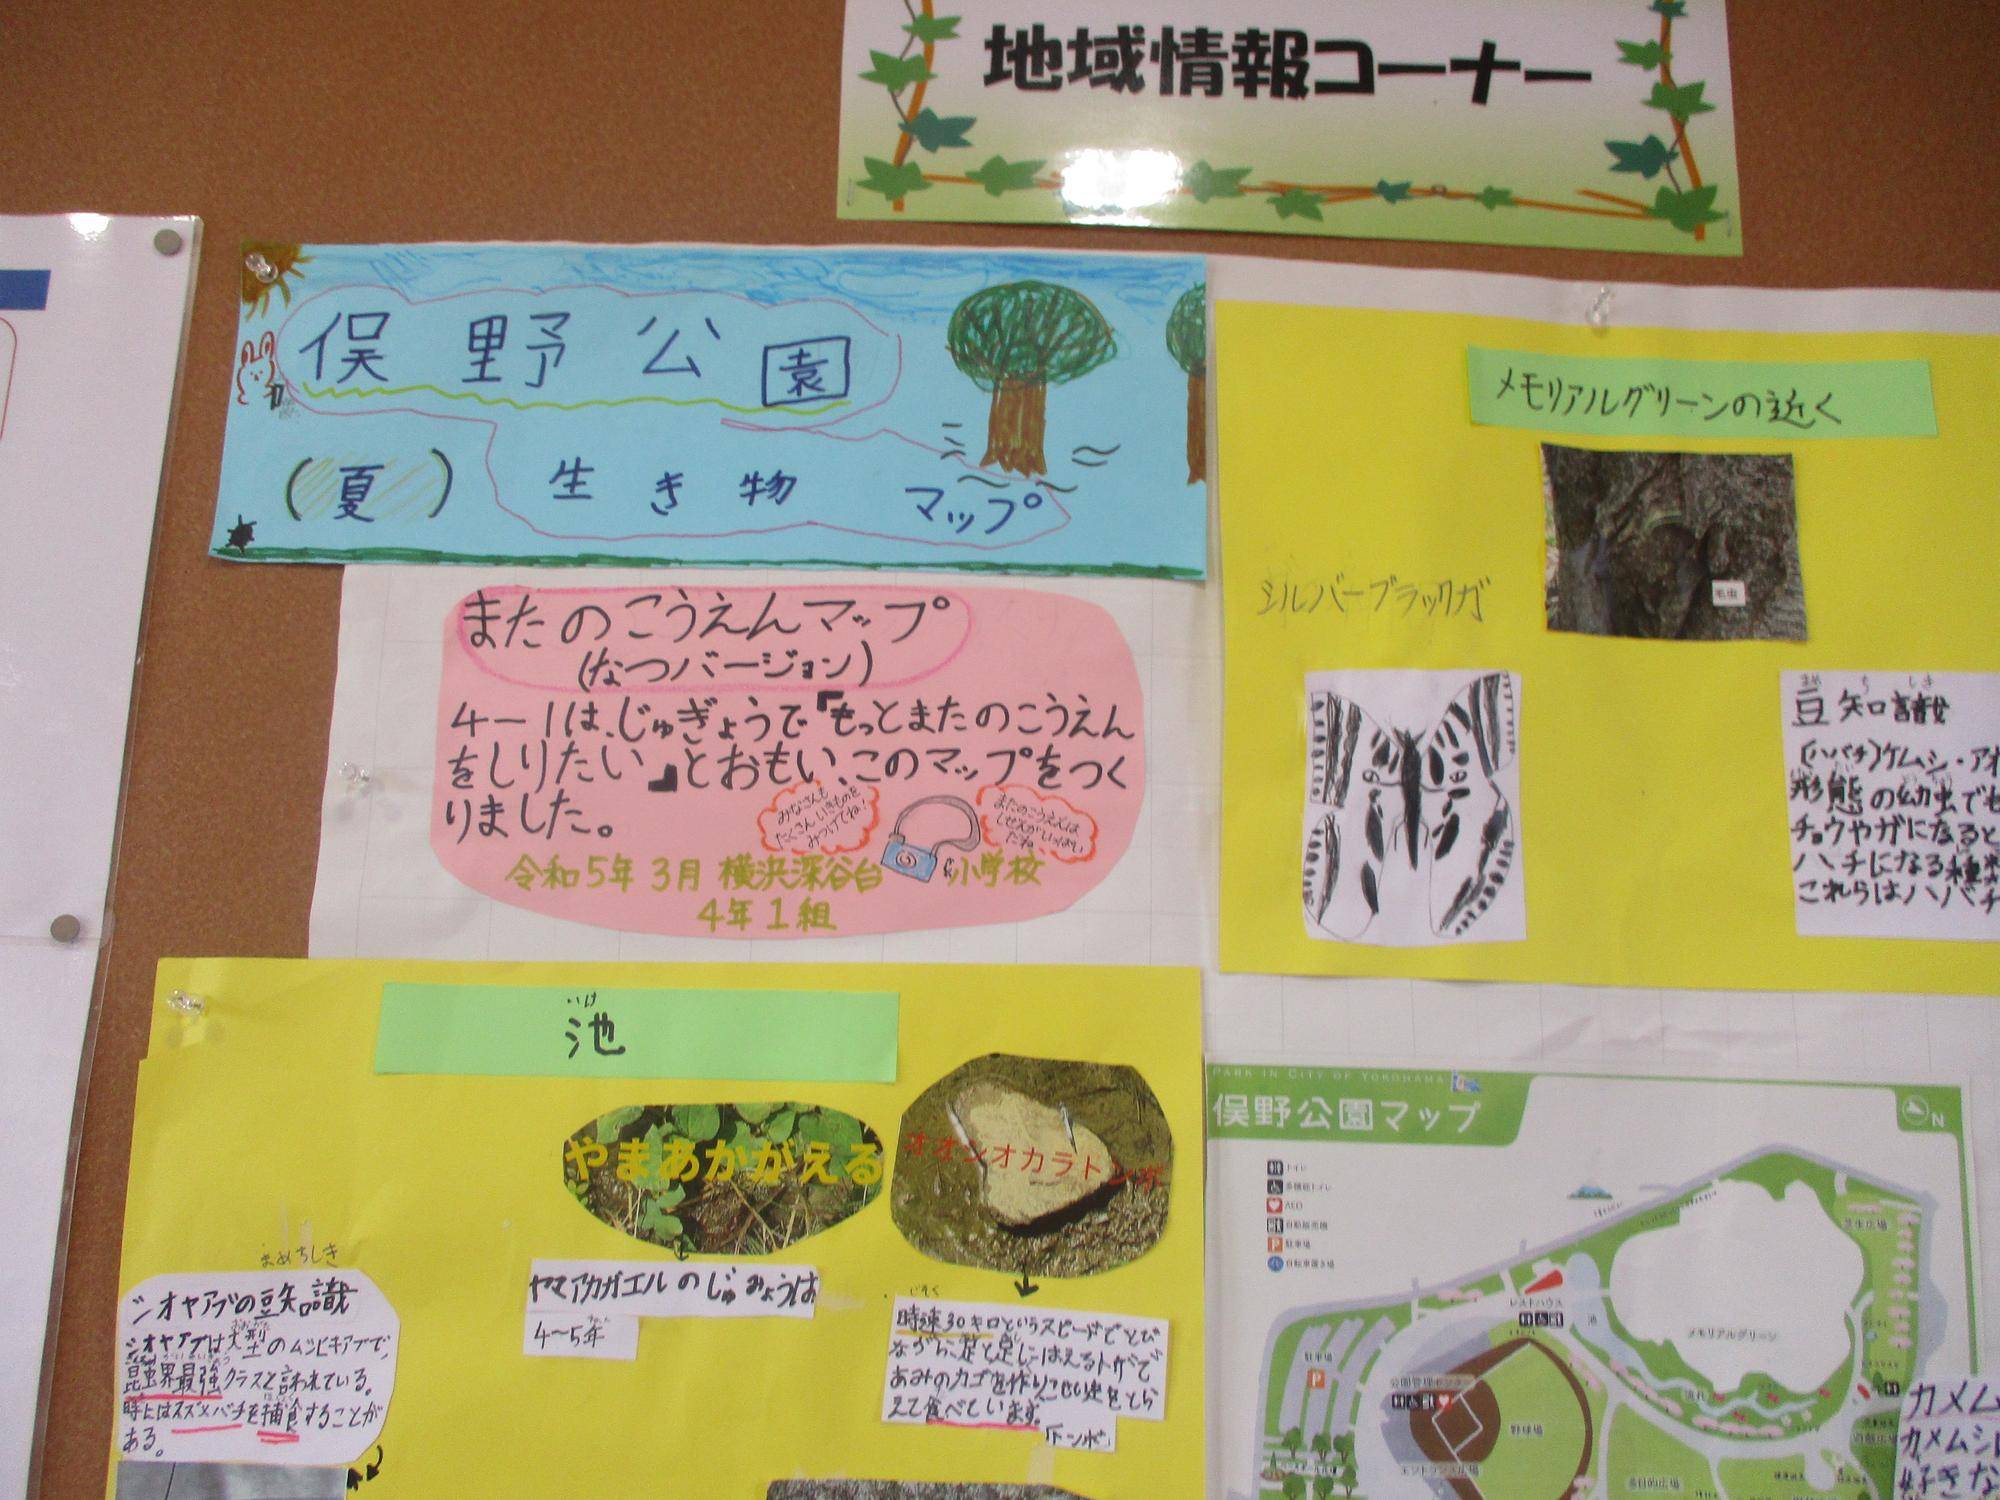 地域情報コーナー
俣野公園
(夏) 生き物 マップ
またのこうえんマップ
(なつバージョン)
4-1は、じゅぎょうで『もっとまたのこうえん
をしりたい』とおもい、このマップをつく
りました。
みなさんも
たくさんいきものを
みつけてね!
またのこうえんは
しぜんがいっぱい
だね
令和5年3月 横浜深谷台小学校
4年1組
メモリアルグリーンの近く
毛虫
シルバーブラックガ
まめ ち しき
豆知識
(ハバチ)ケムシ・アオ
形態の幼虫でも
チョウやガになると
ハチになる種類
これらはハバチ
いけ
池
やまあかがえる
オオシオカラトンボ
ヤマアカガエルのじゅみょうは
4~5年
じそく
時速30キロというスピードでとび
ながら、足と足にはえるトゲで
あみのカゴを作り、こん虫をとら
えて食べています。
「トンボ」
まめちしき
シオヤアブの豆知識
シオヤアブは大型のムシヒキアブで、
昆虫界最強クラスと言われている。
時にはスズメバチを捕食することが
ある。
PARK IN CITY OF YOKOHAMA
俣野公園マップ
N
トイレ
多機能トイレ
AED
自動販売機
駐車場
自転車置き場
芝生広場
レストハウス
池
メモリアルグリーン
駐車場
P
公園管理センター
流れ
野球場
エントランス広場
多目的広場
カメム
カメムシは
好きな